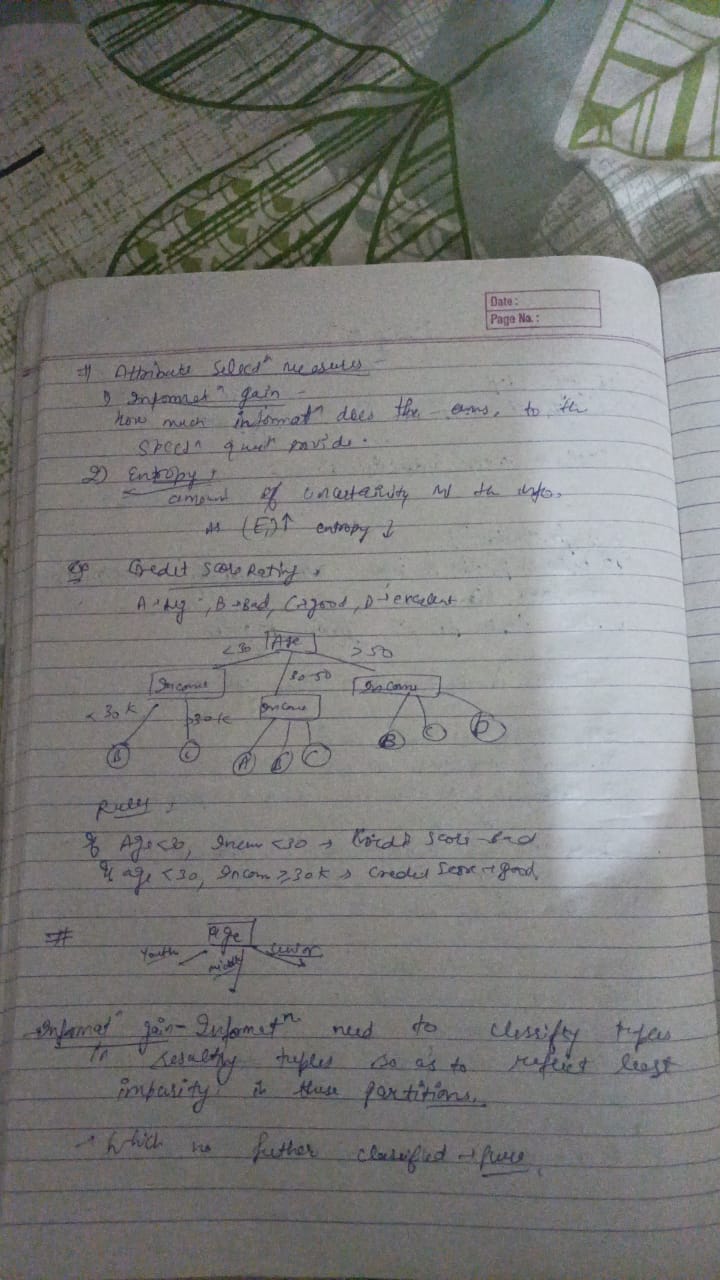 Date :
Page No. :
# Attribute Selectⁿ measures -
1) Informatⁿ gain -
how much informatⁿ does the ans. to the
specⁿ questⁿ provide.
2) Entropy,
amount of uncertainity in the info.
As (E₁)↑ entropy ↓
Credit Score Rating,
A → Avg, B → Bad, C → good, D → excelent
Age
<30 30-50 ≥50
Income Income Income
<30K ≥30K
B C A B C B C D
Rules,
If Age <30, Incom <30 → Credit Score - bad
If age <30, Incom ≥30K → Credit Score → good.
# Age
Youth middle Senior
Informatⁿ gain - Informatⁿ need to classify tuples
in resulting tuples so as to reflect least
impurity in these partitions.
→ Which no futher classified → pure.